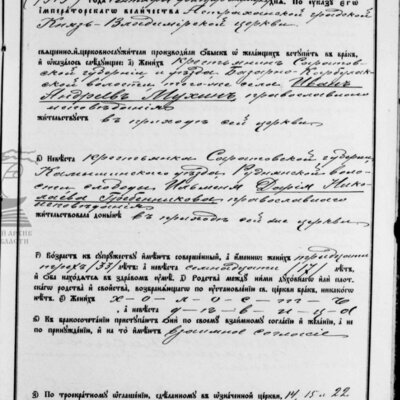 года
По указу Его
Императорскаго Величества Астраханской градской
Князь-Владимірской церкви
священно-и-церковнослужители производили обыскъ о желающихъ вступить въ бракъ,
и оказалось слѣдующее: а) Женихъ крестьянинъ Саратов-
ской губерніи и уѣзда Базарно-Карбулак-
ской волости того же села Иванъ
Андреевъ Мухинъ, православнаго
исповѣданія
жительствуетъ въ приходѣ сей церкви
б) Невѣста крестьянка Саратовской губерніи
Камышинскаго уѣзда Руднянской воло-
сти слободы Ильменя Дарія Нико-
лаева православнаго
исповѣданія
жительствовала донынѣ въ приходѣ сей же церкви
г) Возрастъ къ супружеству имѣютъ совершенный, а именно: женихъ тридцати
трехъ (33) лѣтъ а невѣста семнадцати (17) лѣтъ,
и оба находятся въ здравомъ умѣ. д) Родства между ними духовнаго или плот-
скаго родства и свойства, возбраняющаго по установленію св. церкви бракъ, никакого
нѣтъ. е) Женихъ х-о-л-о-с-т-ъ
, а невѣста д-ѣ-в-и-ц-а
ж) Къ бракосочетанію приступаютъ они по своему взаимному согласію и желанію, а не
по принужденію, и на то имѣютъ взаимное согласіе
з) По троекратному оглашенію, сдѣланному въ означенной церкви, 14, 15 и 22